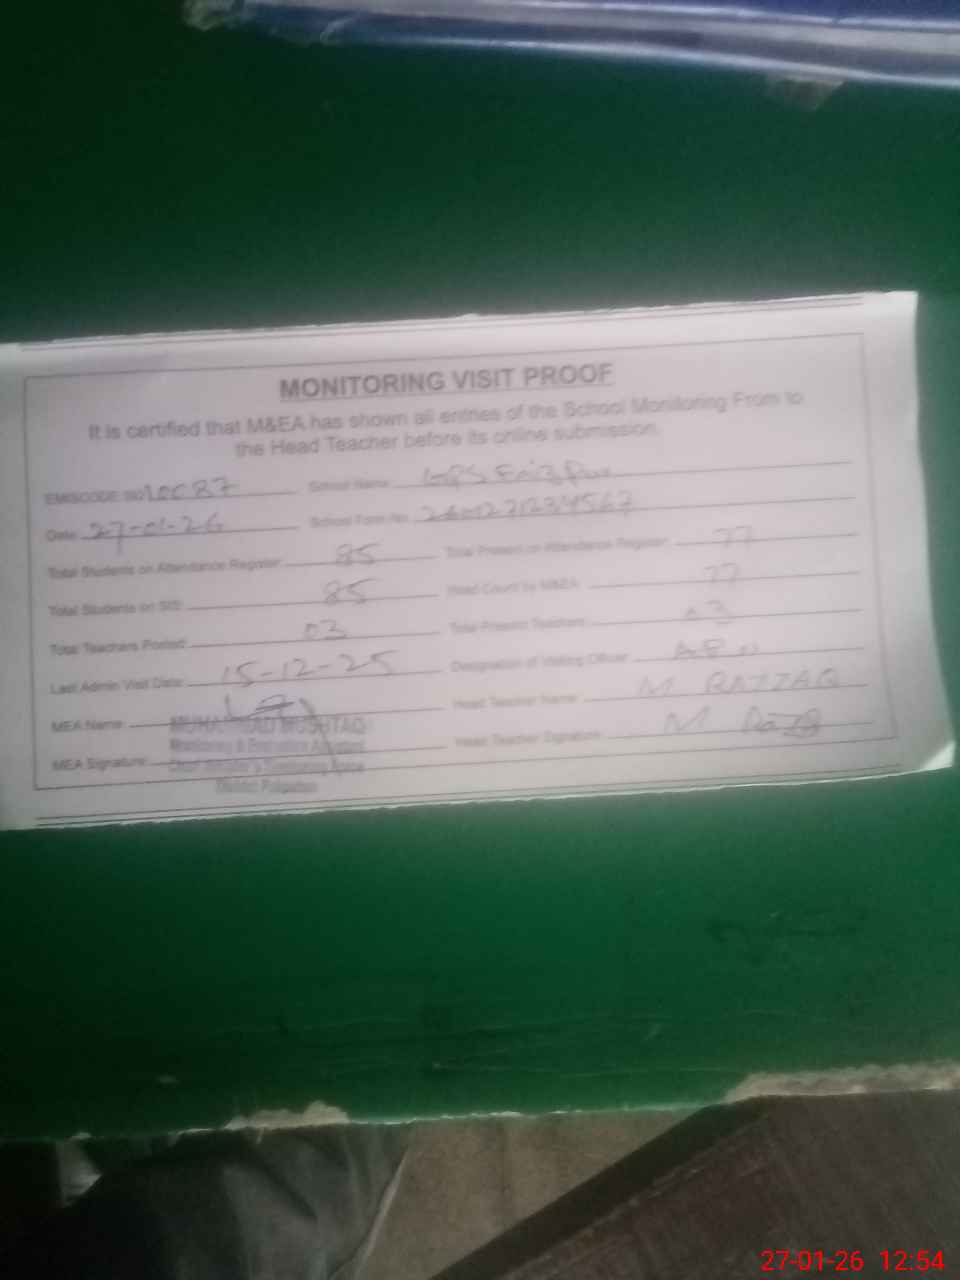 MONITORING VISIT PROOF
It is certified that M&EA has shown all entries of the School Monitoring From to
the Head Teacher before its online submission.
EMISCODE NO School Name
Date: 27-01-26 School Form No.
Total Students on Attendance Register: 85 Total Present on Attendance Register: 77
Total Students on SIS: 85 Head Count by M&EA: 77
Total Teachers Posted: 03 Total Present Teachers: 03
Last Admin Visit Date: 15-12-25 Designation of Visiting Officer:
MEA Name: Head Teacher Name: M RAZZAQ
MUHAMMAD MUSHTAQ
Monitoring & Evaluation Assistant
MEA Signature: Head Teacher Signature: M
District
27-01-26 12:54